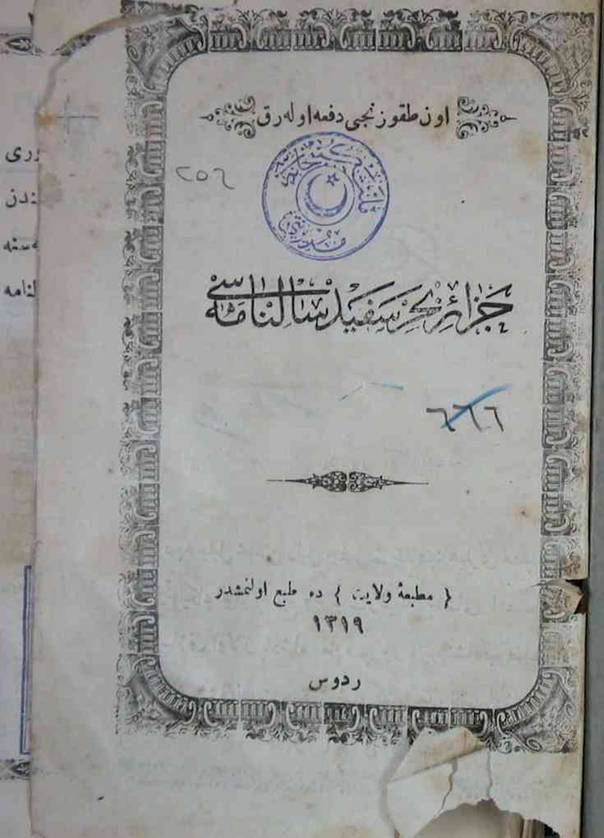 اون طقوزنجی دفعه اوله رق
٢٥٦
جزائر بحر سفید سالنامه سی
٦٦٦
{ مطبعهٔ ولایت } ده طبع اولنمشدر
١٣١٩
ردوس
وری
ندن
لنامه